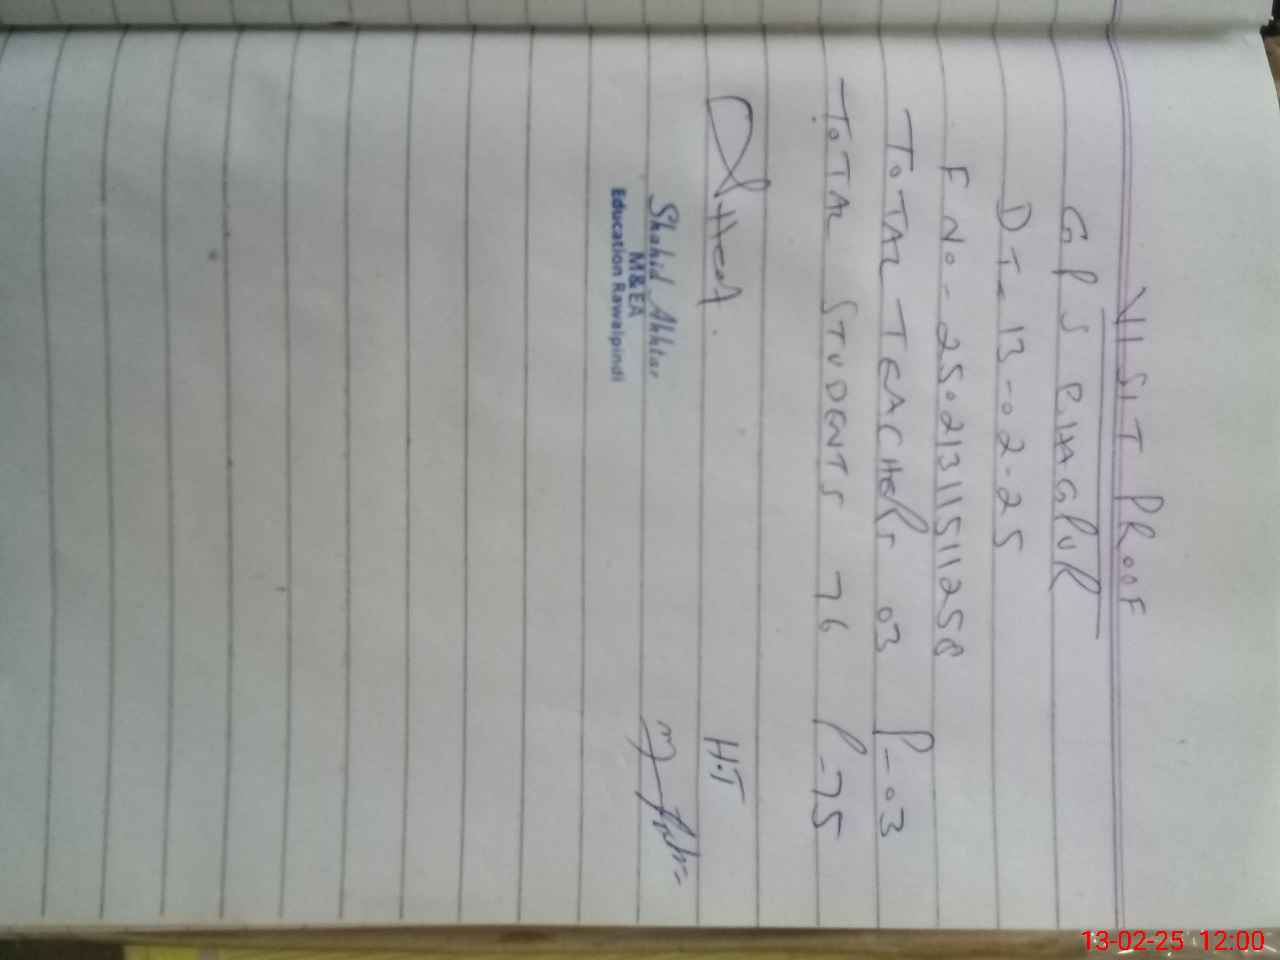 VISIT PROOF
GPS BHAGPUR
DT- 13-02-25
F NO- 25021311511258
TOTAL TEACHERS 03 P-03
TOTAL STUDENTS 76 P-75
H.T
Shahid Akhtar
M&EA
Education Rawalpindi
13-02-25 12:00